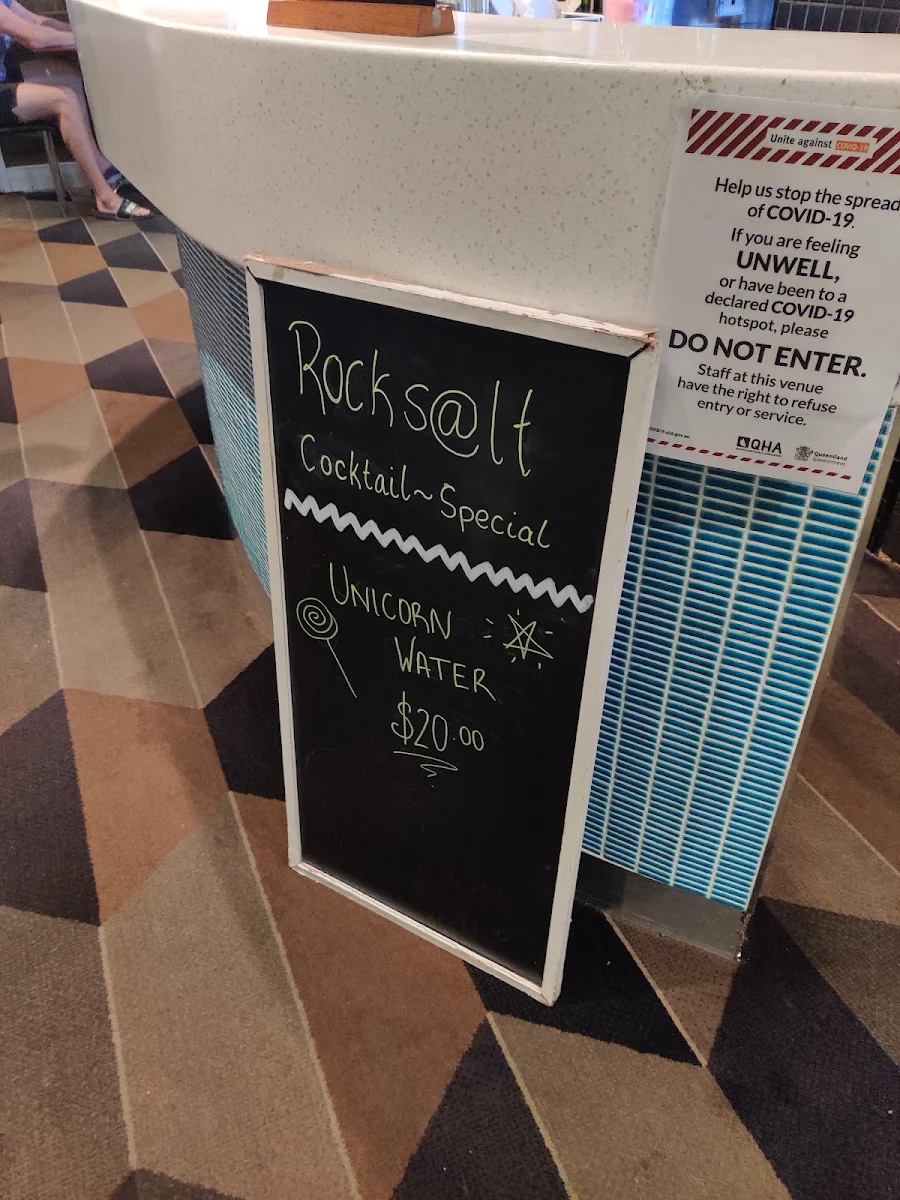 Rocks@lt
Cocktail~Special
UNICORN
WATER
$20.00
Unite against COVID-19
Help us stop the spread
of COVID-19.
If you are feeling
UNWELL,
or have been to a
declared COVID-19
hotspot, please
DO NOT ENTER.
Staff at this venue
have the right to refuse
entry or service.
QHA
Queensland
Government